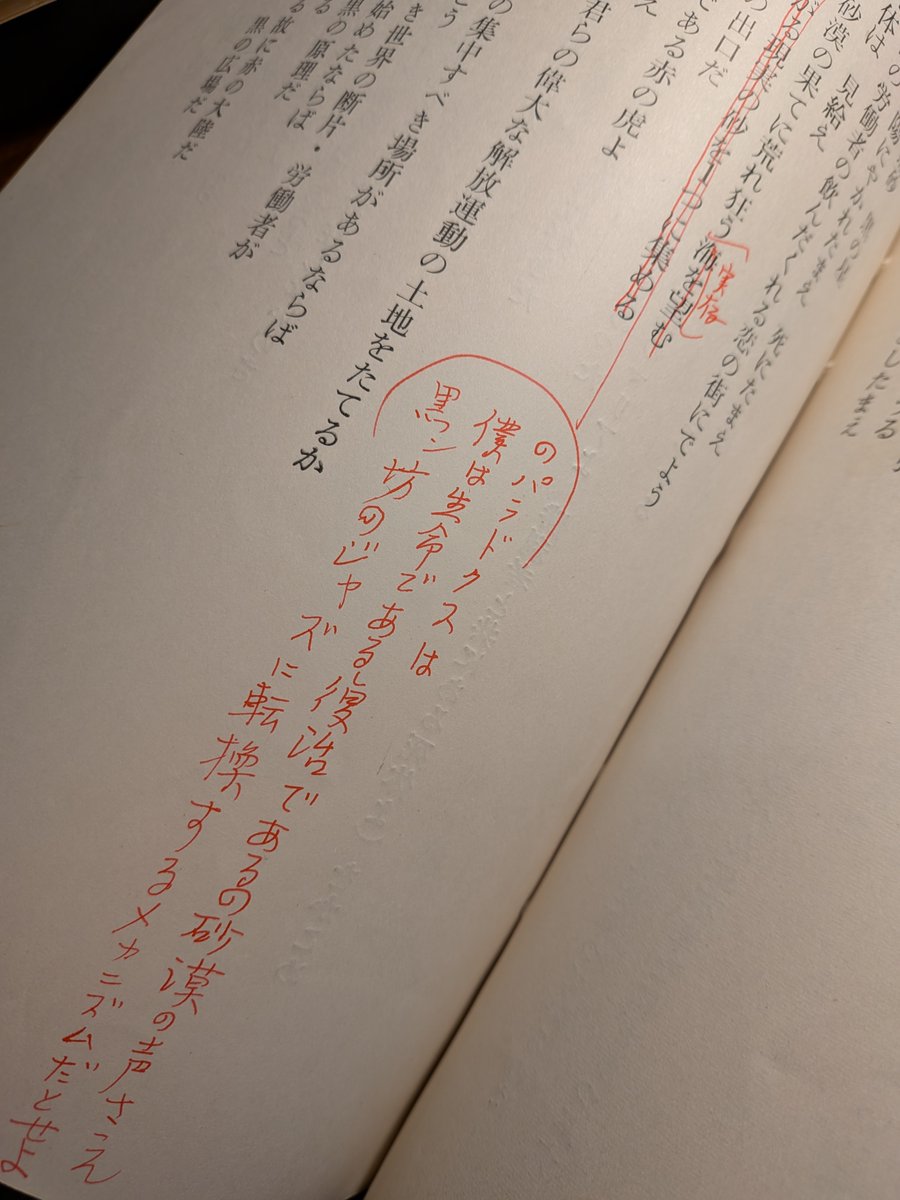 したまえ
体は 労働者の飲んだくれる恋の街にでよう
砂漠の果てに荒れ狂う海を望む
実存
がる現実の砂を1つに集める
の出口だ
である赤の虎よ
え
君らの偉大な解放運動の土地をたてるか
の集中すべき場所があるならば
こう
き世界の断片・労働者が
始めたならば
黒の原理だ
る
る故に赤の大陸だ
黒の広場だ
のパラドクスは
僕は生命である復活であるの砂漠の声さえ
黒ン坊のジャズに転換するメカニズムだとせよ